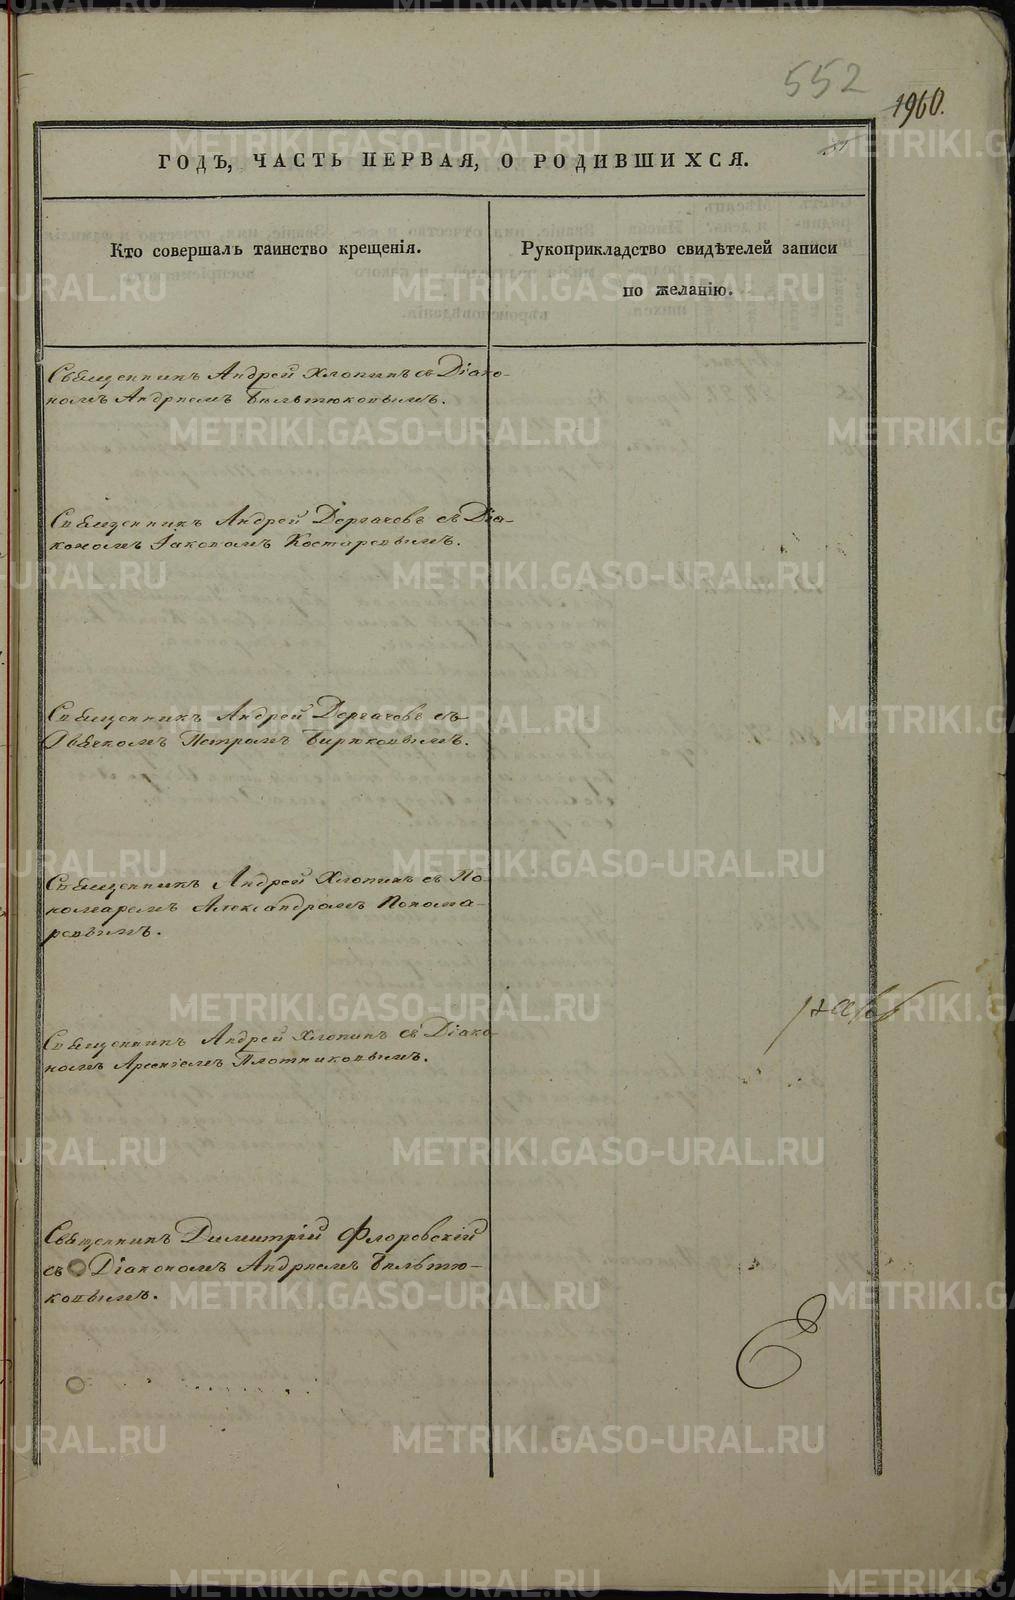 552
1960.
ГОДЪ, ЧАСТЬ ПЕРВАЯ, О РОДИВШИХСЯ.
Кто совершалъ таинство крещенія.
Рукоприкладство свидѣтелей записи
по желанію.
Священникъ Андрей Хлопинъ съ Діако-
номъ Андреемъ Бѣльтюковымъ.
Священникъ Андрей Дергачевъ съ Діа-
кономъ Іаковомъ Костаревымъ.
Священникъ Андрей Дергачевъ съ
Дьячкомъ Петромъ Бирюковымъ.
Священникъ Андрей Хлопинъ съ По-
номаремъ Александромъ Понома-
ревымъ.
Священникъ Андрей Хлопинъ съ Діако-
номъ Арсеніемъ Плотниковымъ.
Священникъ Димитрій Флоровскій
съ Діакономъ Андреемъ Бѣльтю-
ковымъ.
METRIKI.GASO-URAL.RU